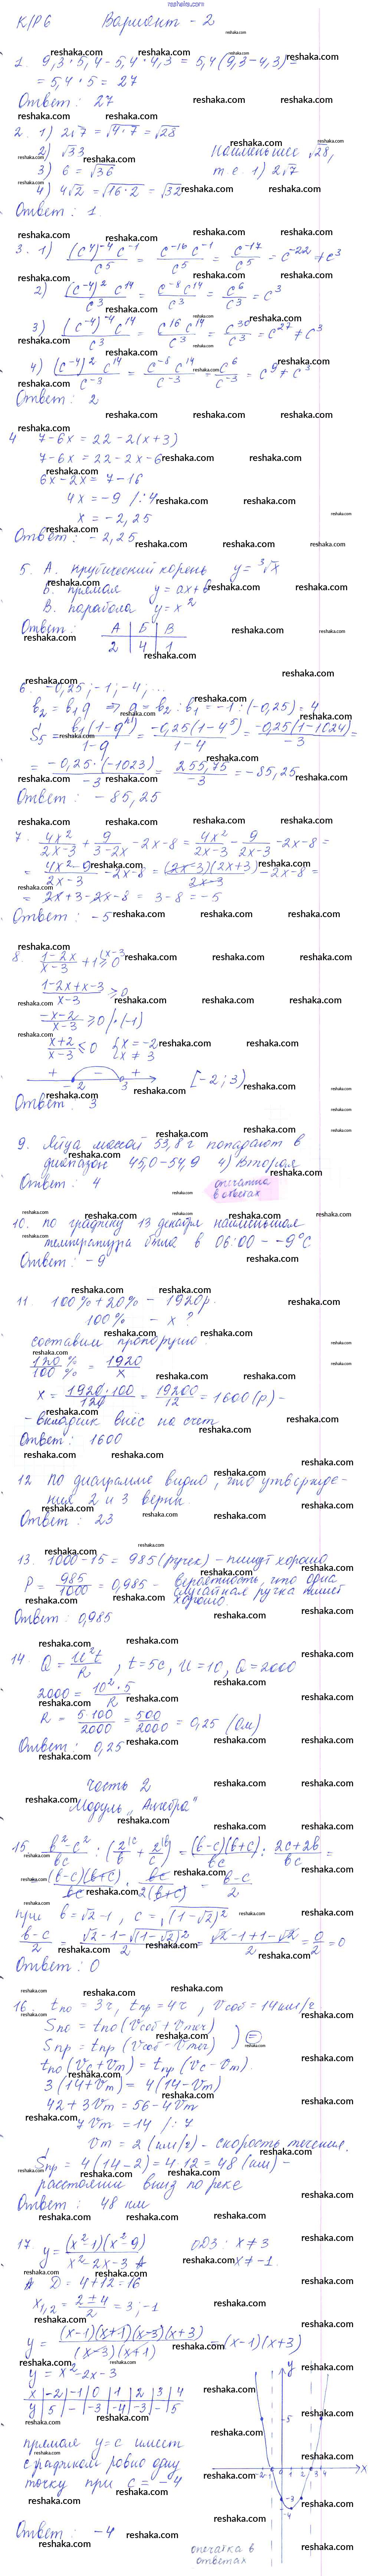 К/Р6 Вариант - 2
1. 9,3 · 5,4 - 5,4 · 4,3 = 5,4 (9,3 - 4,3) =
= 5,4 · 5 = 27
Ответ: 27
2. 1) 2√7 = √(4·7) = √28
2) √33
3) 6 = √36
4) 4√2 = √(16·2) = √32
Наименьшее √28,
т.е. 1) 2√7
Ответ: 1.
3. 1) (c^4)^-4 c^-1 / c^5 = c^-16 c^-1 / c^5 = c^-17 / c^5 = c^-22 ≠ c^3
2) (c^-4)^2 c^14 / c^3 = c^-8 c^14 / c^3 = c^6 / c^3 = c^3
3) (c^-4)^-4 c^14 / c^3 = c^16 c^14 / c^3 = c^30 / c^3 = c^27 ≠ c^3
4) (c^-4)^2 c^14 / c^-3 = c^-8 c^14 / c^-3 = c^6 / c^-3 = c^9 ≠ c^3
Ответ: 2
4 7 - 6x = 22 - 2(x+3)
7 - 6x = 22 - 2x - 6
6x - 2x = 7 - 16
4x = -9 /:4
x = -2,25
Ответ: -2,25
5. А. кубический корень y = ³√x
Б. прямая y = ax + b
В. парабола y = x²
Ответ: А | Б | В
2 | 4 | 1
6. -0,25; -1; -4; ...
b₂ = b₁q ⇒ q = b₂ : b₁ = -1 : (-0,25) = 4
S₅ = b₁(1-qⁿ) / 1-q = -0,25(1-4⁵) / 1-4 = -0,25(1-1024) / -3 =
= -0,25·(-1023) / -3 = 255,75 / -3 = -85,25
Ответ: -85,25
7. 4x² / 2x-3 + 9 / 3-2x - 2x - 8 = 4x² / 2x-3 - 9 / 2x-3 - 2x - 8 =
= 4x²-9 / 2x-3 - 2x - 8 = (2x-3)(2x+3) / 2x-3 - 2x - 8 =
= 2x + 3 - 2x - 8 = 3 - 8 = -5
Ответ: -5
8 1-2x / x-3 + 1 ≥ 0
1-2x+x-3 / x-3 ≥ 0
-x-2 / x-3 ≥ 0 /·(-1)
x+2 / x-3 ≤ 0 { x = -2 x ≠ 3
+ - + -2 3 [-2; 3)
Ответ: 3
9. Яйца массой 53,8 г попадают в
диапазон 45,0 - 54,9 4) Вторая
Ответ: 4 опечатка в ответах
10. По графику 13 декабря наименьшая
температура была в 06:00 - -9°C
Ответ: -9
11. 100% + 20% - 1920 р.
100% - x ?
составим пропорцию:
120% / 100% = 1920 / x
x = 1920·100 / 120 = 19200 / 12 = 1600 (р) -
- вкладчик внёс на счет
Ответ: 1600
12 По диаграмме видно, что утвержде-
ния 2 и 3 верны.
Ответ: 23
13. 1000 - 15 = 985 (ручек) - пишут хорошо
P = 985 / 1000 = 0,985 - вероятность, что одна
случайная ручка пишет
хорошо.
Ответ: 0,985
14. Q = U²t / R, t = 5c, U = 10, Q = 2000
2000 = 10²·5 / R
R = 5·100 / 2000 = 500 / 2000 = 0,25 (Ом)
Ответ: 0,25
Часть 2
Модуль „Алгебра"
15 b²-c² / bc : (2 / b + 2 / c) = (b-c)(b+c) / bc : 2c+2b / bc =
= (b-c)(b+c) / bc · bc / 2(b+c) = b-c / 2
при b = √2 - 1, c = √(1-√2)²
b-c / 2 = √2-1-√(1-√2)² / 2 = √2-1+1-√2 / 2 = 0 / 2 = 0
Ответ: 0
16. tпо = 3ч, tпр = 4ч, Vсоб = 14 км/ч
Sпо = tпо (Vсоб + Vтеч)
Sпр = tпр (Vсоб - Vтеч) =
tпо (Vc + Vт) = tпр (Vc - Vт).
3 (14 + Vт) = 4 (14 - Vт)
42 + 3Vт = 56 - 4Vт
7Vт = 14 /:7
Vт = 2 (км/ч) - скорость течения.
Sпр = 4 (14 - 2) = 4·12 = 48 (км) -
расстояние вниз по реке
Ответ: 48 км
17. y = (x²-1)(x²-9) / x²-2x-3 ОДЗ: x ≠ 3
x ≠ -1.
D = 4 + 12 = 16
x₁,₂ = 2±4 / 2 = 3; -1
y = (x-1)(x+1)(x-3)(x+3) / (x-3)(x+1) = (x-1)(x+3)
y = x² - 2x - 3
x | -2 | -1 | 0 | 1 | 2 | 3 | 4
y | 5 | - | -3 | -4 | -3 | - | 5
прямая y = c имеет
с графиком ровно одну
точку при c = -4
Ответ: -4
опечатка в
ответах
reshaka.com